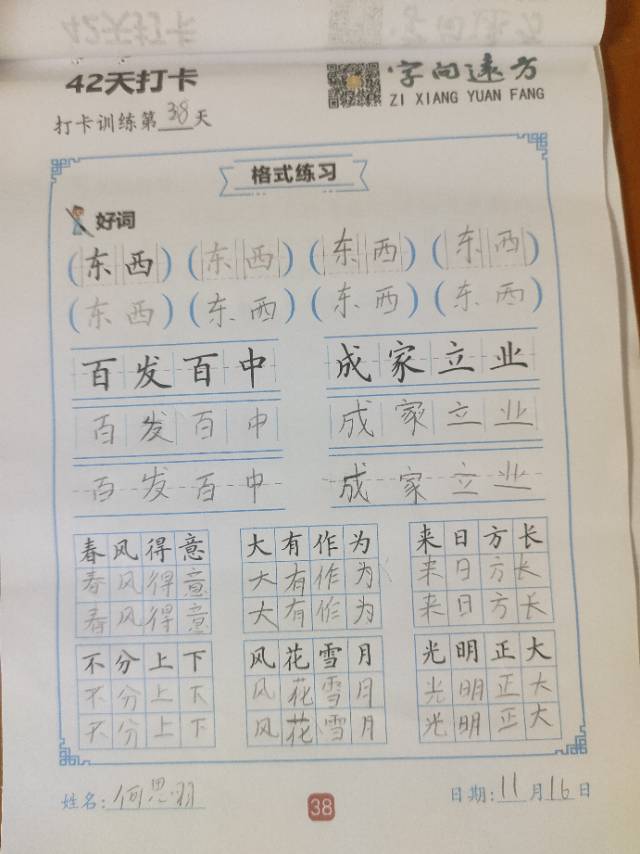 42天打卡
字向远方
ZI XIANG YUAN FANG
打卡训练第38天
格式练习
好词
(东西) (东西) (东西) (东西)
(东西) (东西) (东西) (东西)
百发百中 成家立业
百发百中 成家立业
百发百中 成家立业
春风得意 大有作为 来日方长
春风得意 大有作为 来日方长
春风得意 大有作为 来日方长
不分上下 风花雪月 光明正大
不分上下 风花雪月 光明正大
不分上下 风花雪月 光明正大
姓名:何思羽 38 日期:11月16日